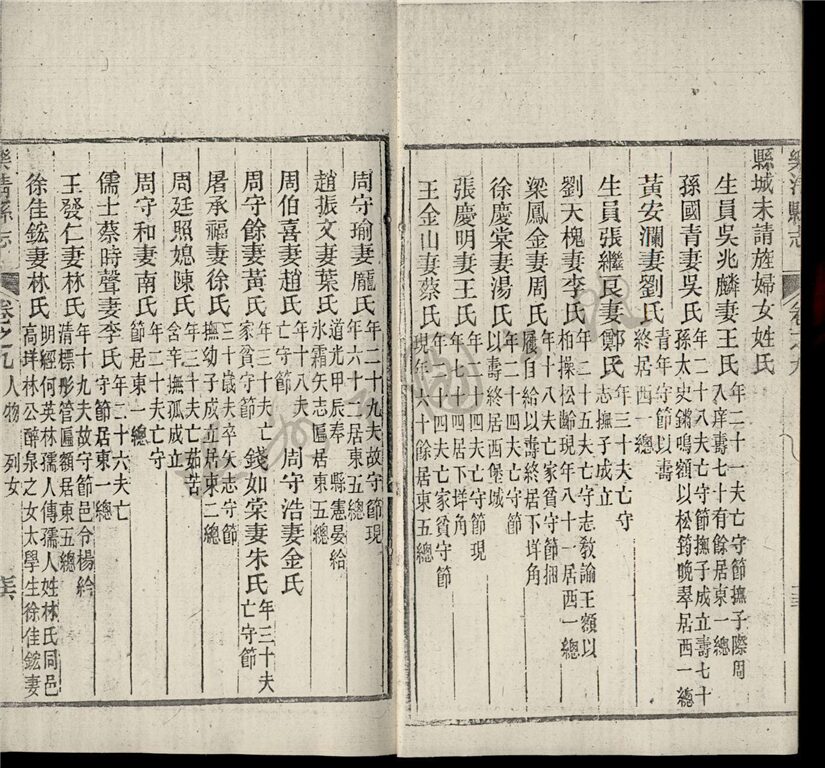 樂清縣志
卷之九
縣城未請旌婦女姓氏
生員吳兆麟妻王氏 年二十一夫亡守節撫子際周入庠壽七十有餘居東一總
孫國青妻吳氏 年二十八夫亡守節撫子成立壽七十孫太史鏘鳴額以松筠晚翠居西一總
黃安瀾妻劉氏 青年守節以壽終居西一總
生員張繼良妻鄭氏 年三十夫亡守志撫子成立
劉天槐妻李氏 年二十五夫亡守志教諭王額以柏操松齡現年八十一居西一總
梁鳳金妻周氏 年十八夫亡家貧守節捆屨自給以壽終居下垟角
徐慶棠妻湯氏 年二十四夫亡守節以壽終居西堡城
張慶明妻王氏 年二十四夫亡守節現年七十四居下垟角
王金山妻蔡氏 年二十四夫亡家貧守節現年六十餘居東五總
周守瑜妻龐氏 年二十九夫故守節現年六十八居東五總
趙振文妻葉氏 道光甲辰奉 縣憲晏給冰霜矢志匾居東五總
周伯喜妻趙氏 年十八夫亡守節 周守浩妻金氏
周守餘妻黃氏 年三十夫亡家貧守節 錢如棠妻朱氏 年三十夫亡守節
屠承福妻徐氏 三十歲夫卒矢志守節撫幼子成立居東二總
周廷照媳陳氏 年三十夫亡茹苦含辛撫孤成立
周守和妻南氏 年二十夫亡守節居東一總
儒士蔡時聲妻李氏 年二十六夫亡守節居東一總
王發仁妻林氏 年十九夫故守節邑令楊給清標彤管匾額居東五總
徐佳鋐妻林氏 明經何英林孺人傳孺人姓林氏同邑高垟林公醉泉之女太學生徐佳鋐妻
樂清縣志
卷之九 人物 列女